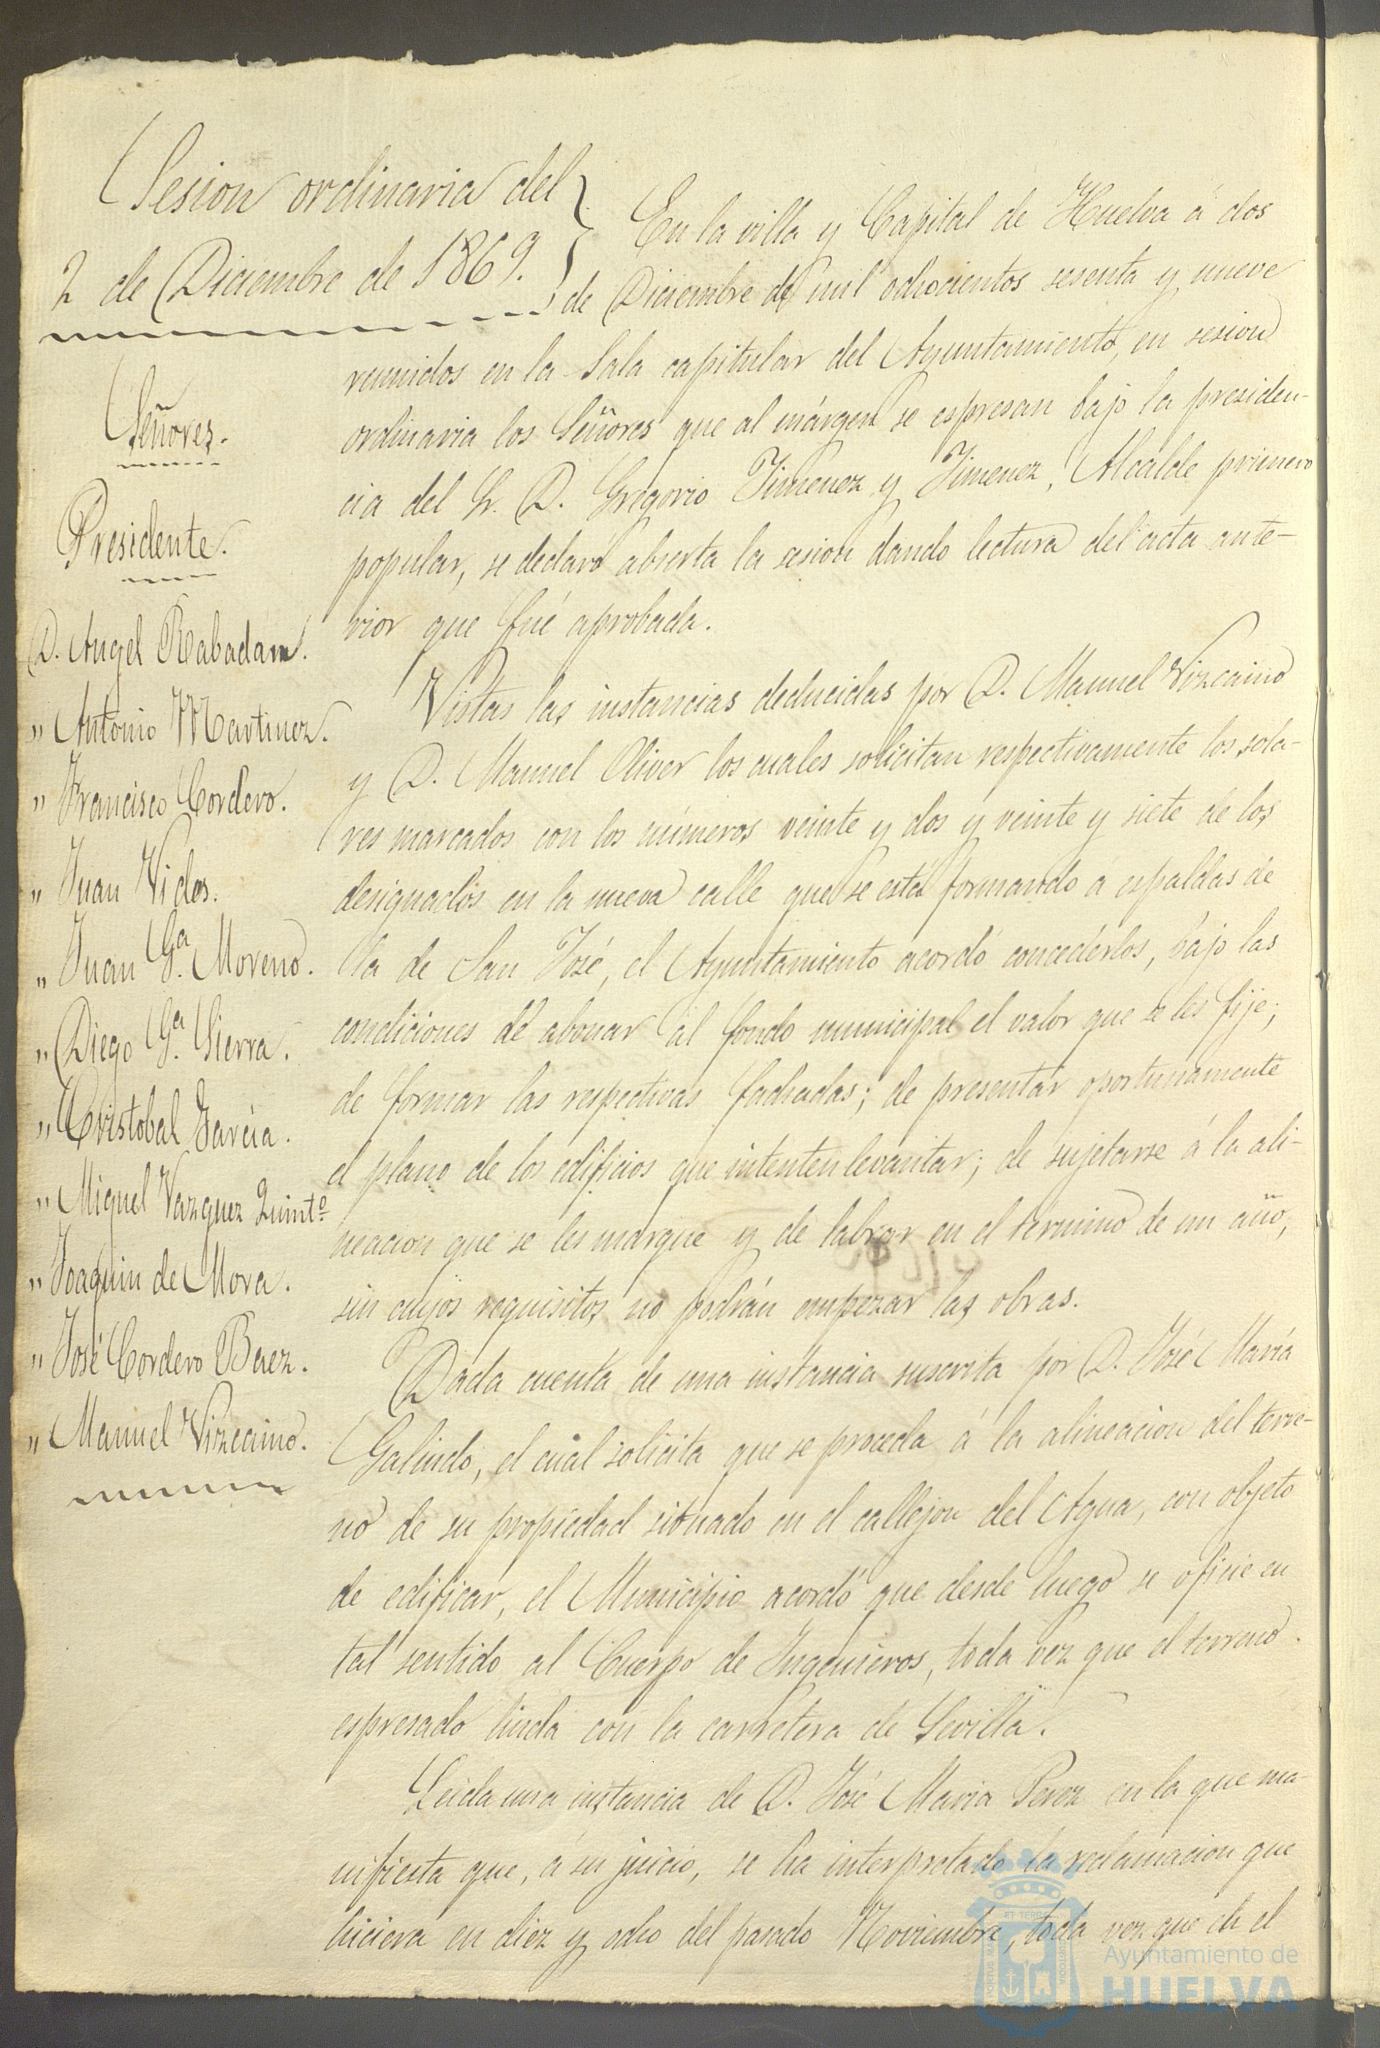 Sesion ordinaria del
2 de Diciembre de 1869.
Señores.
Presidente.
D. Angel Rabadan.
" Antonio Martinez.
" Francisco Cordero.
" Juan Vides.
" Juan Gª. Moreno.
" Diego Gª. Sierra.
" Cristobal Garcia.
" Miguel Vazquez Quintº
" Joaquin de Mora.
" José Cordero Baez.
" Manuel Vizcaino.
En la villa y Capital de Huelva á dos
de Diciembre de mil ochocientos sesenta y nueve
reunidos en la Sala capitular del Ayuntamiento, en sesion
ordinaria los Señores que al márgen se espresan bajo la presiden-
cia del Sr. D. Gregorio Jimenez y Jimenez, Alcalde primero
popular, se declaró abierta la sesion dando lectura del acta ante-
rior que fué aprobada.
Vistas las instancias deducidas por D. Manuel Vizcaino
y D. Manuel Oliver los cuales solicitan respectivamente los sola-
res marcados con los números veinte y dos y veinte y siete de los
designados en la nueva calle que se está formando á espaldas de
la de San José, el Ayuntamiento acordó concederlos, bajo las
condiciones de abonar al fondo municipal el valor que se les fije;
de formar las respectivas fachadas; de presentar oportunamente
el plano de los edificios que intenten levantar; de sujetarse á la ali-
neacion que se les marque y de labrar en el termino de un año,
sin cuyos requisitos no podrán empezar las obras.
Dada cuenta de una instancia suscrita por D. José Maria
Galindo, el cual solicita que se proceda á la alineacion del terre-
no de su propiedad situado en el callejon del Agua, con objeto
de edificar, el Municipio acordó que desde luego se oficie en
tal sentido al Cuerpo de Ingenieros, toda vez que el terreno
espresado linda con la carretera de Sevilla.
Leida una instancia de D. José Maria Perez en la que ma-
nifiesta que, á su juicio, se ha interpretado la reclamacion que
hiciera en diez y ocho del pasado Noviembre, toda vez que en el
Ayuntamiento de
HUELVA